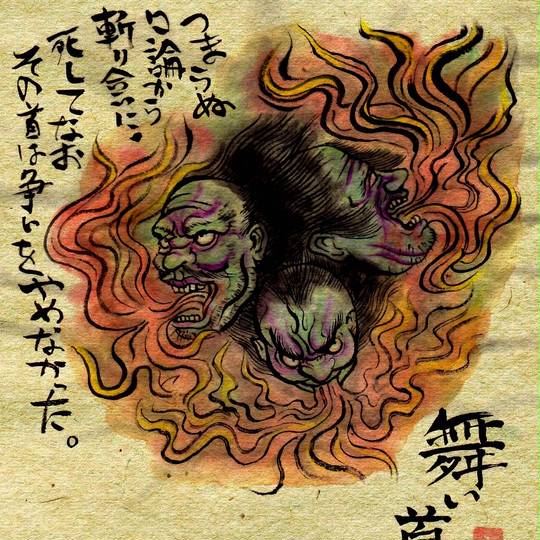 つまらぬ
口論から
斬り合いに。
死してなお
その首は争いをやめなかった。
舞い
首